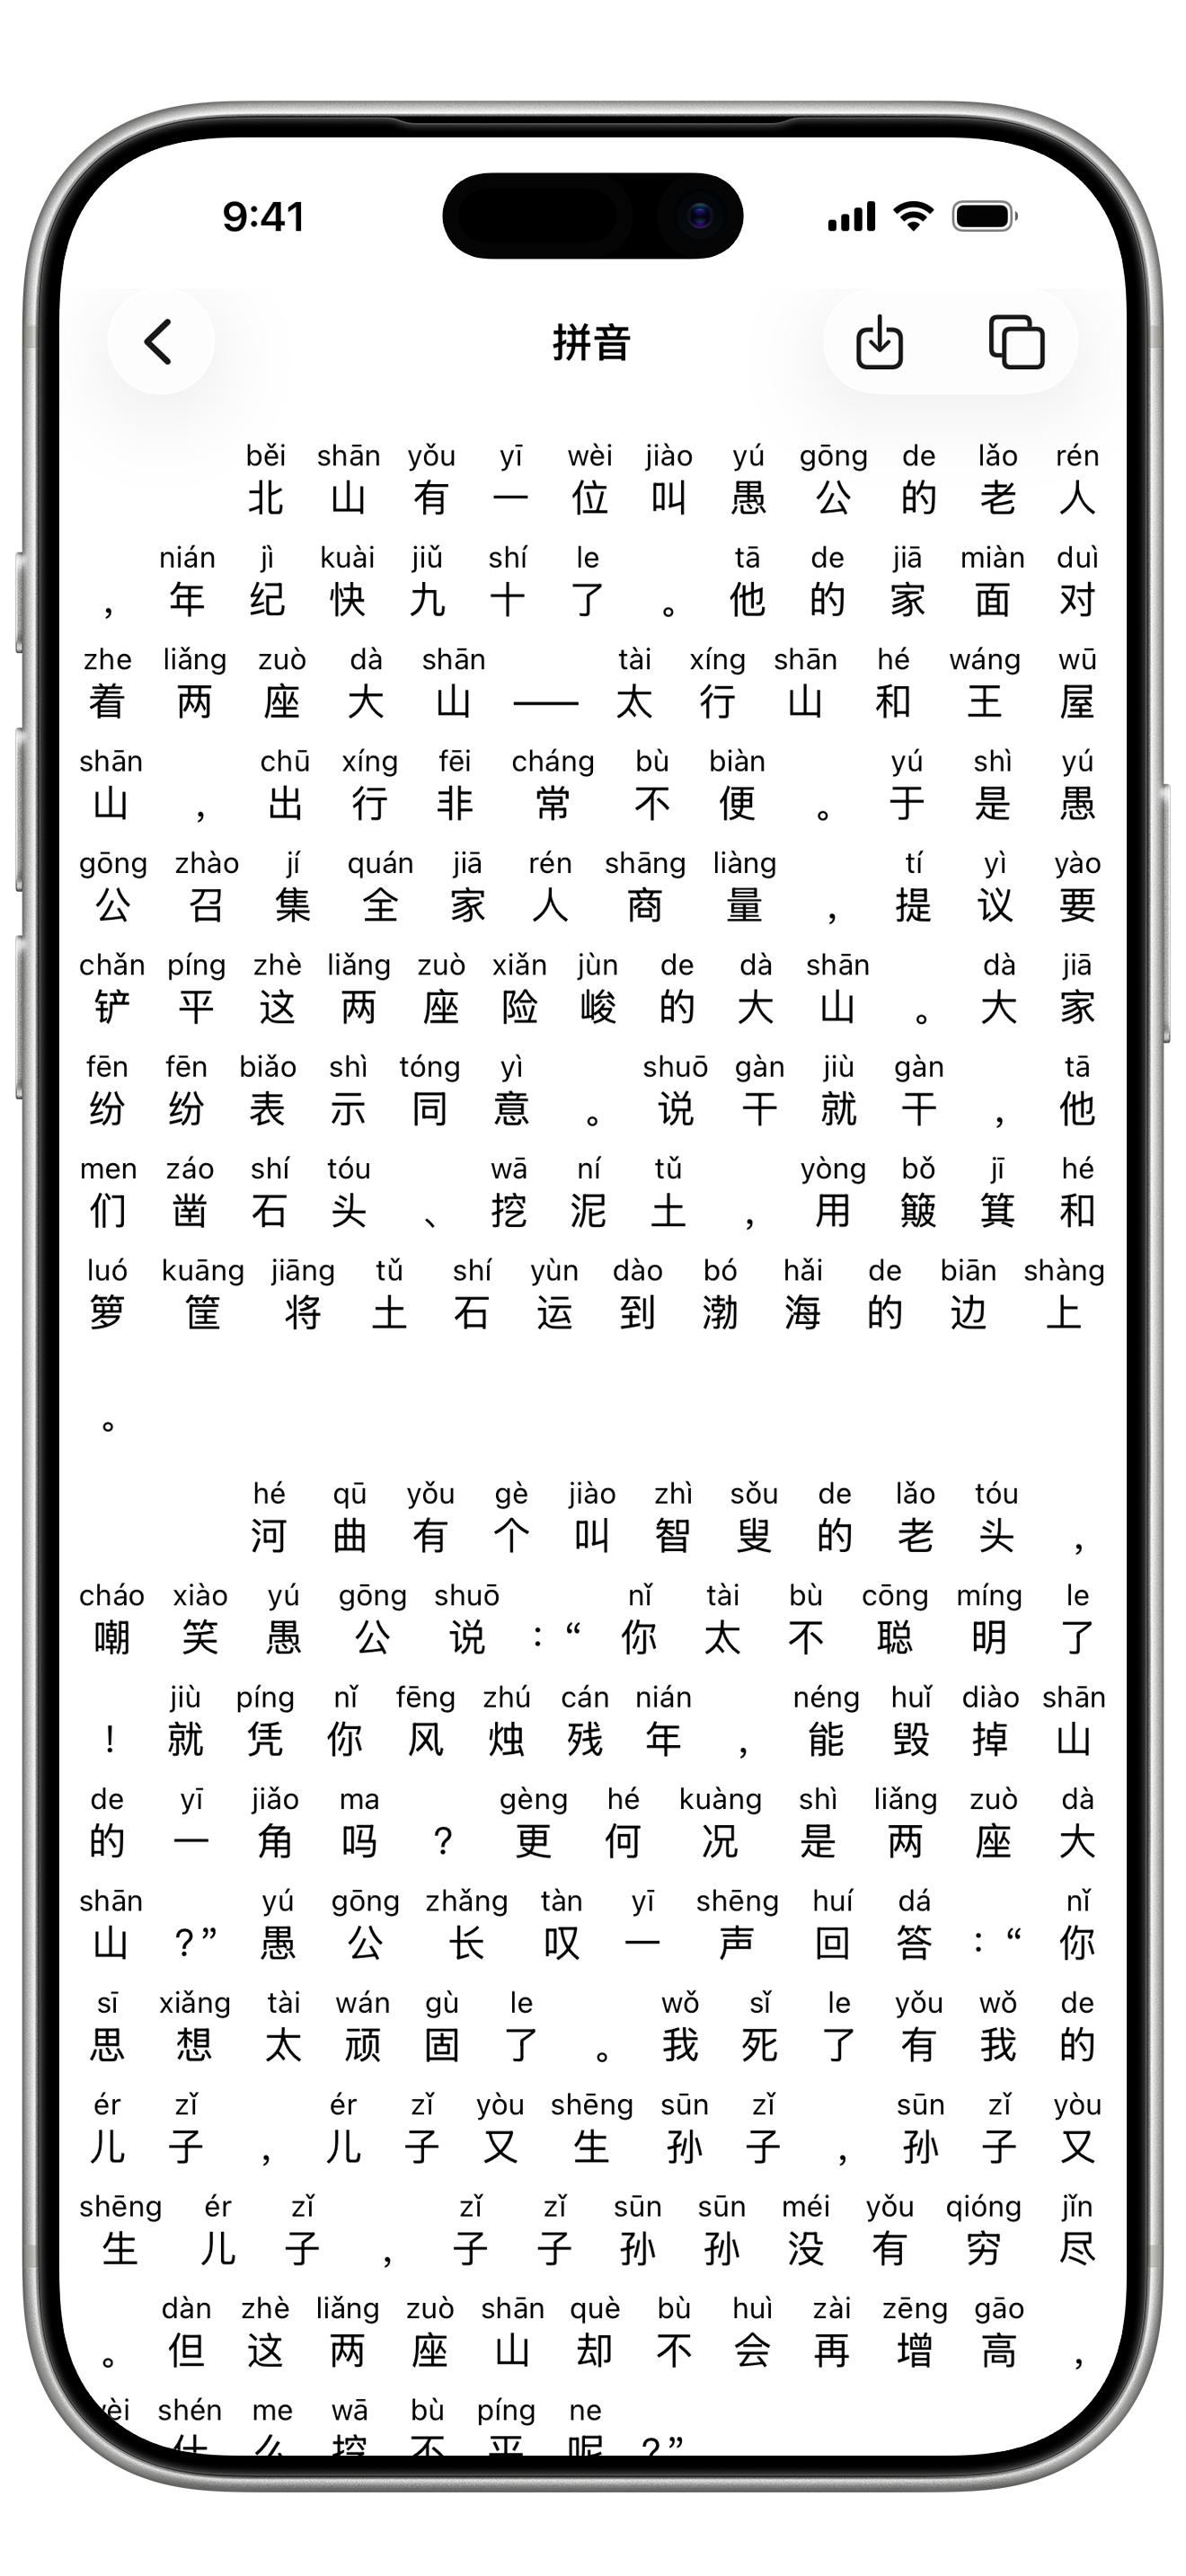 9:41
拼音
běi shān yǒu yī wèi jiào yú gōng de lǎo rén
北山有一位叫愚公的老人
nián jì kuài jiǔ shí le tā de jiā miàn duì
，年纪快九十了。他的家面对
zhe liǎng zuò dà shān tài xíng shān hé wáng wū
着两座大山——太行山和王屋
shān chū xíng fēi cháng bù biàn yú shì yú
山，出行非常不便。于是愚
gōng zhào jí quán jiā rén shāng liàng tí yì yào
公召集全家人商量，提议要
chǎn píng zhè liǎng zuò xiǎn jùn de dà shān dà jiā
铲平这两座险峻的大山。大家
fēn fēn biǎo shì tóng yì shuō gàn jiù gàn tā
纷纷表示同意。说干就干，他
men záo shí tóu wā ní tǔ yòng bǒ jī hé
们凿石头、挖泥土，用簸箕和
luó kuāng jiāng tǔ shí yùn dào bó hǎi de biān shàng
箩筐将土石运到渤海的边上
。
hé qū yǒu gè jiào zhì sǒu de lǎo tóu
河曲有个叫智叟的老头，
cháo xiào yú gōng shuō nǐ tài bù cōng míng le
嘲笑愚公说：“你太不聪明了
jiù píng nǐ fēng zhú cán nián néng huǐ diào shān
！就凭你风烛残年，能毁掉山
de yī jiǎo ma gèng hé kuàng shì liǎng zuò dà
的一角吗？更何况是两座大
shān yú gōng zhǎng tàn yī shēng huí dá nǐ
山？”愚公长叹一声回答：“你
sī xiǎng tài wán gù le wǒ sǐ le yǒu wǒ de
思想太顽固了。我死了有我的
ér zǐ ér zǐ yòu shēng sūn zǐ sūn zǐ yòu
儿子，儿子又生孙子，孙子又
shēng ér zǐ zǐ zǐ sūn sūn méi yǒu qióng jǐn
生儿子，子子孙孙没有穷尽
dàn zhè liǎng zuò shān què bù huì zài zēng gāo
。但这两座山却不会再增高，
wèi shén me wā bù píng ne
什么挖不平呢？”